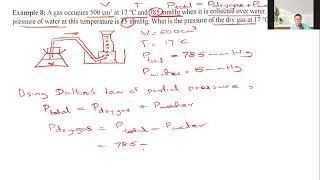 V T Ptotal = Pdrygas + Pwater
Example 8: A gas occupies 500 cm³ at 17 °C and 785 mmHg when it is collected over water.
pressure of water at this temperature is 15 mmHg. What is the pressure of the dry gas at 17 °C
V = 500 cm³
T = 17°C
Ptotal = 785 mmHg
Pwater = 15 mmHg
Using Dalton's law of partial pressure,
Ptotal = Pdrygas + Pwater
Pdrygas = Ptotal - Pwater
= 785 -